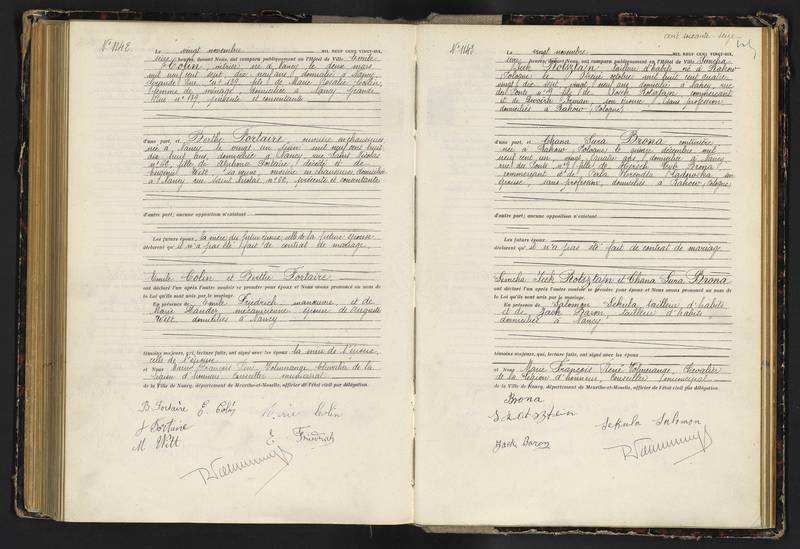 N° 1142
Le vingt novembre MIL NEUF CENT VINGT-SIX,
seize heures, devant Nous, ont comparu publiquement en l'Hôtel de Ville Emile
Colin, né à Nancy le deux mars
mil neuf cent sept, dix neuf ans, domicilié à Nancy,
Grande Rue n° 139, fils de Marie Rosalie Colin,
femme de ménage, domiciliée à Nancy Grande
Rue n° 139, présente et consentante
d'une part, et Berthe Fortaire, ouvrière en chaussures
née à Nancy le vingt un juin mil neuf cent huit
dix huit ans, domiciliée à Nancy rue Saint Nicolas
n° 50, fille de Fortaire, décédé et de
Eugénie Witt, sa veuve, ouvrière en chaussures, domiciliée
à Nancy rue Saint Nicolas n° 50, présente et consentante
d'autre part; aucune opposition n'existant
Les futurs époux, la mère du futur époux, celle de la future épouse
déclarent qu'il n'a pas été fait de contrat de mariage.
Emile Colin et Berthe Fortaire
ont déclaré l'un après l'autre vouloir se prendre pour époux et Nous avons prononcé au nom de
la Loi qu'ils sont unis par le mariage.
En présence de Emile Friedrich, manœuvre, et de
Marie épouse de Auguste
Witt domiciliés à Nancy
témoins majeurs, qui, lecture faite, ont signé avec les époux la mère de l'époux,
celle de l'épouse
et Nous Marie François René Volmerange, Chevalier de la
Légion d'honneur, Conseiller municipal
de la Ville de Nancy, département de Meurthe-et-Moselle, officier de l'état civil par délégation.
B. Fortaire E. Colin Marie Colin
Fortaire
M. Witt E. Friedrich
cent soixante-seize
N° 1143
Le vingt novembre MIL NEUF CENT VINGT-SIX,
seize heures, devant Nous, ont comparu publiquement en l'Hôtel de Ville Simcha
Icek Rotsztajn, tailleur d'habits né à Rakow
Pologne le octobre mil huit cent quatre
vingt dix sept, vingt neuf ans domicilié à Nancy, rue
du Pont n° fils de Rotsztajn commerçant
et de son épouse, sans profession,
domiciliés à Rakow (Pologne)
d'une part, et Chana Sura Brona couturière
née à Rakow Pologne le quinze décembre mil
neuf cent un, vingt quatre ans, domiciliée à Nancy
rue du Pont n° fille de Herszek Brona
commerçant et de Perla son
épouse, sans profession, domiciliés à Rakow, Pologne
d'autre part; aucune opposition n'existant
Les futurs époux
déclarent qu'il n'a pas été fait de contrat de mariage
Simcha Icek Rotsztajn et Chana Sura Brona
ont déclaré l'un après l'autre vouloir se prendre pour époux et Nous avons prononcé au nom de
la Loi qu'ils sont unis par le mariage.
En présence de Salomon Sekula, tailleur d'habits
et de Jack Baron, tailleur d'habits
domiciliés à Nancy
témoins majeurs, qui, lecture faite, ont signé avec les époux
et Nous Marie François René Volmerange, Chevalier
de la Légion d'honneur, Conseiller municipal
de la Ville de Nancy, département de Meurthe-et-Moselle, officier de l'état civil par délégation.
Brona
Sekula Salmon
Jack Baron